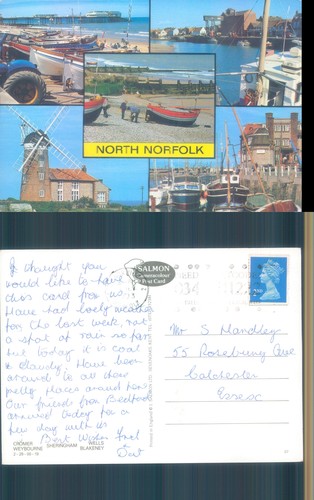 NORTH NORFOLK
I thought you
would like to have
this card from us.
Have had lovely weather
for the last week, not
a spot of rain so far
but today it is cool
& cloudy. Have been
around to all these
pretty places around here.
Our friend from Bedford
arrived today for a
few day with us
Best Wishes
SALMON
Post Card
Mr S Handley
55 Roseburg Ave
Colchester
Essex
CROMER SHERINGHAM WELLS
WEYBOURNE BLAKENEY